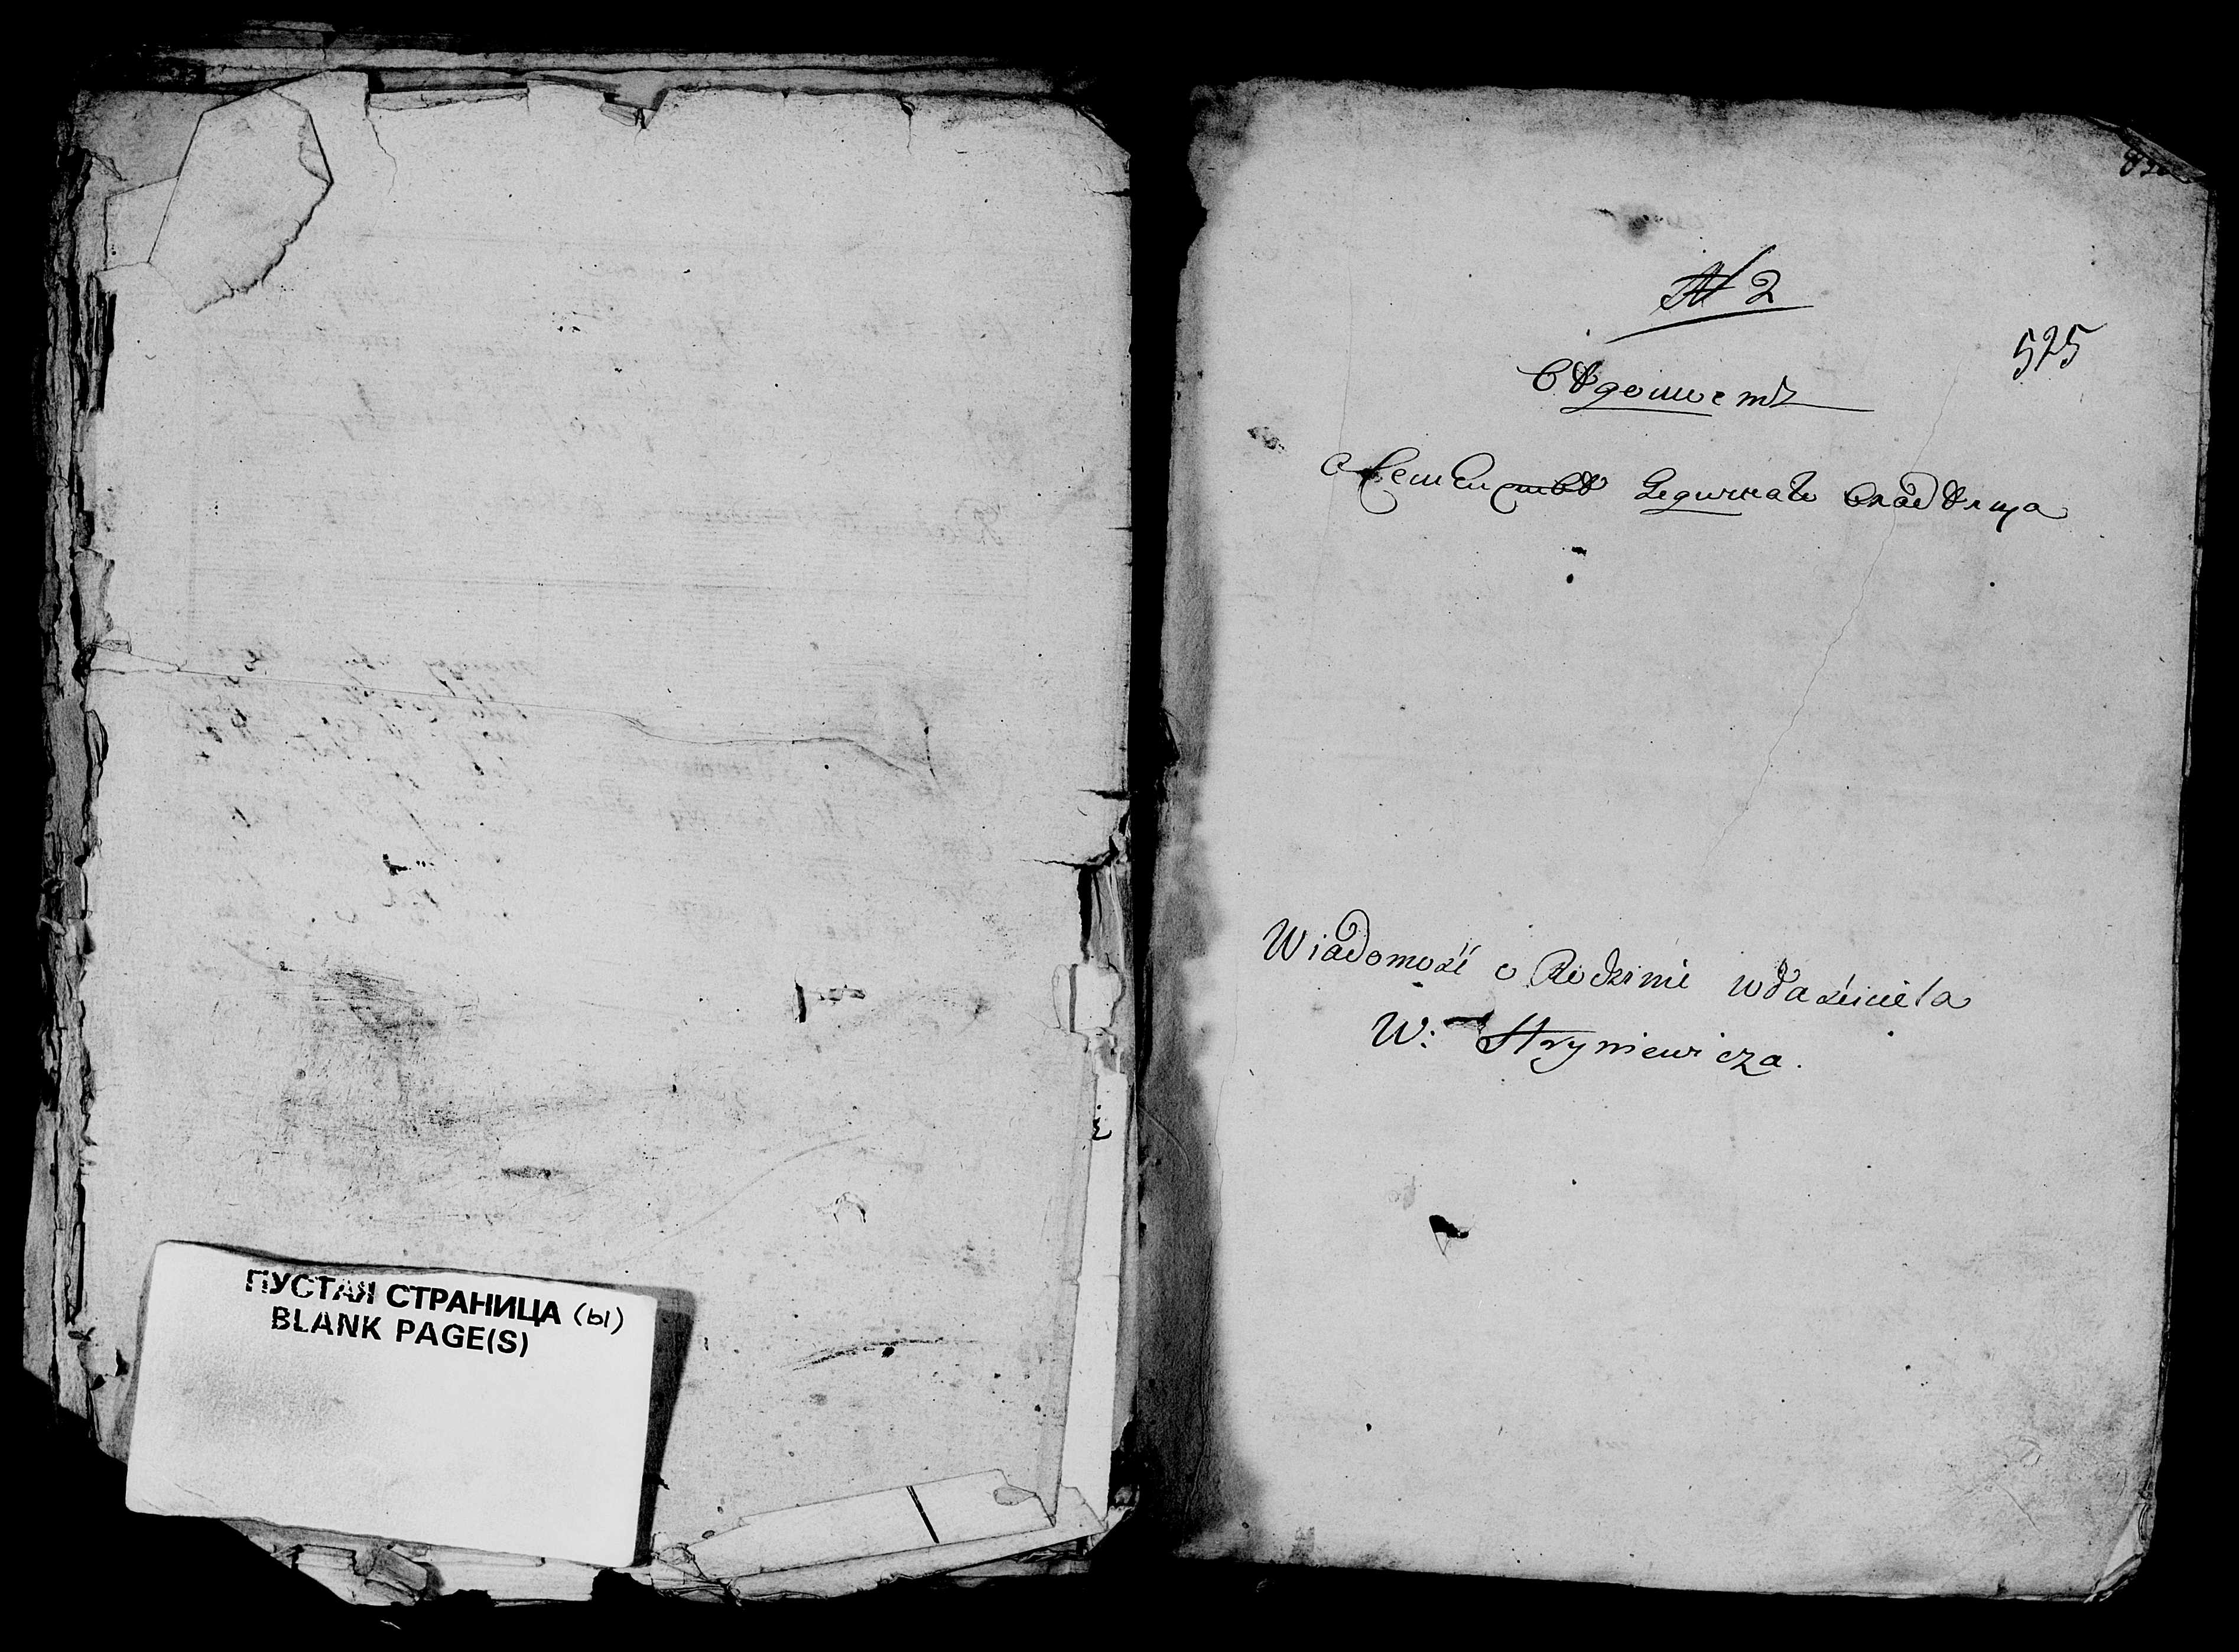 ПУСТАЯ СТРАНИЦА (Ы)
BLANK PAGE(S)
№ 2
525
Вѣдомость
о Семействѣ владѣльца
Wiadomość o Rodzinie właściciela
W: Hryniewicza.